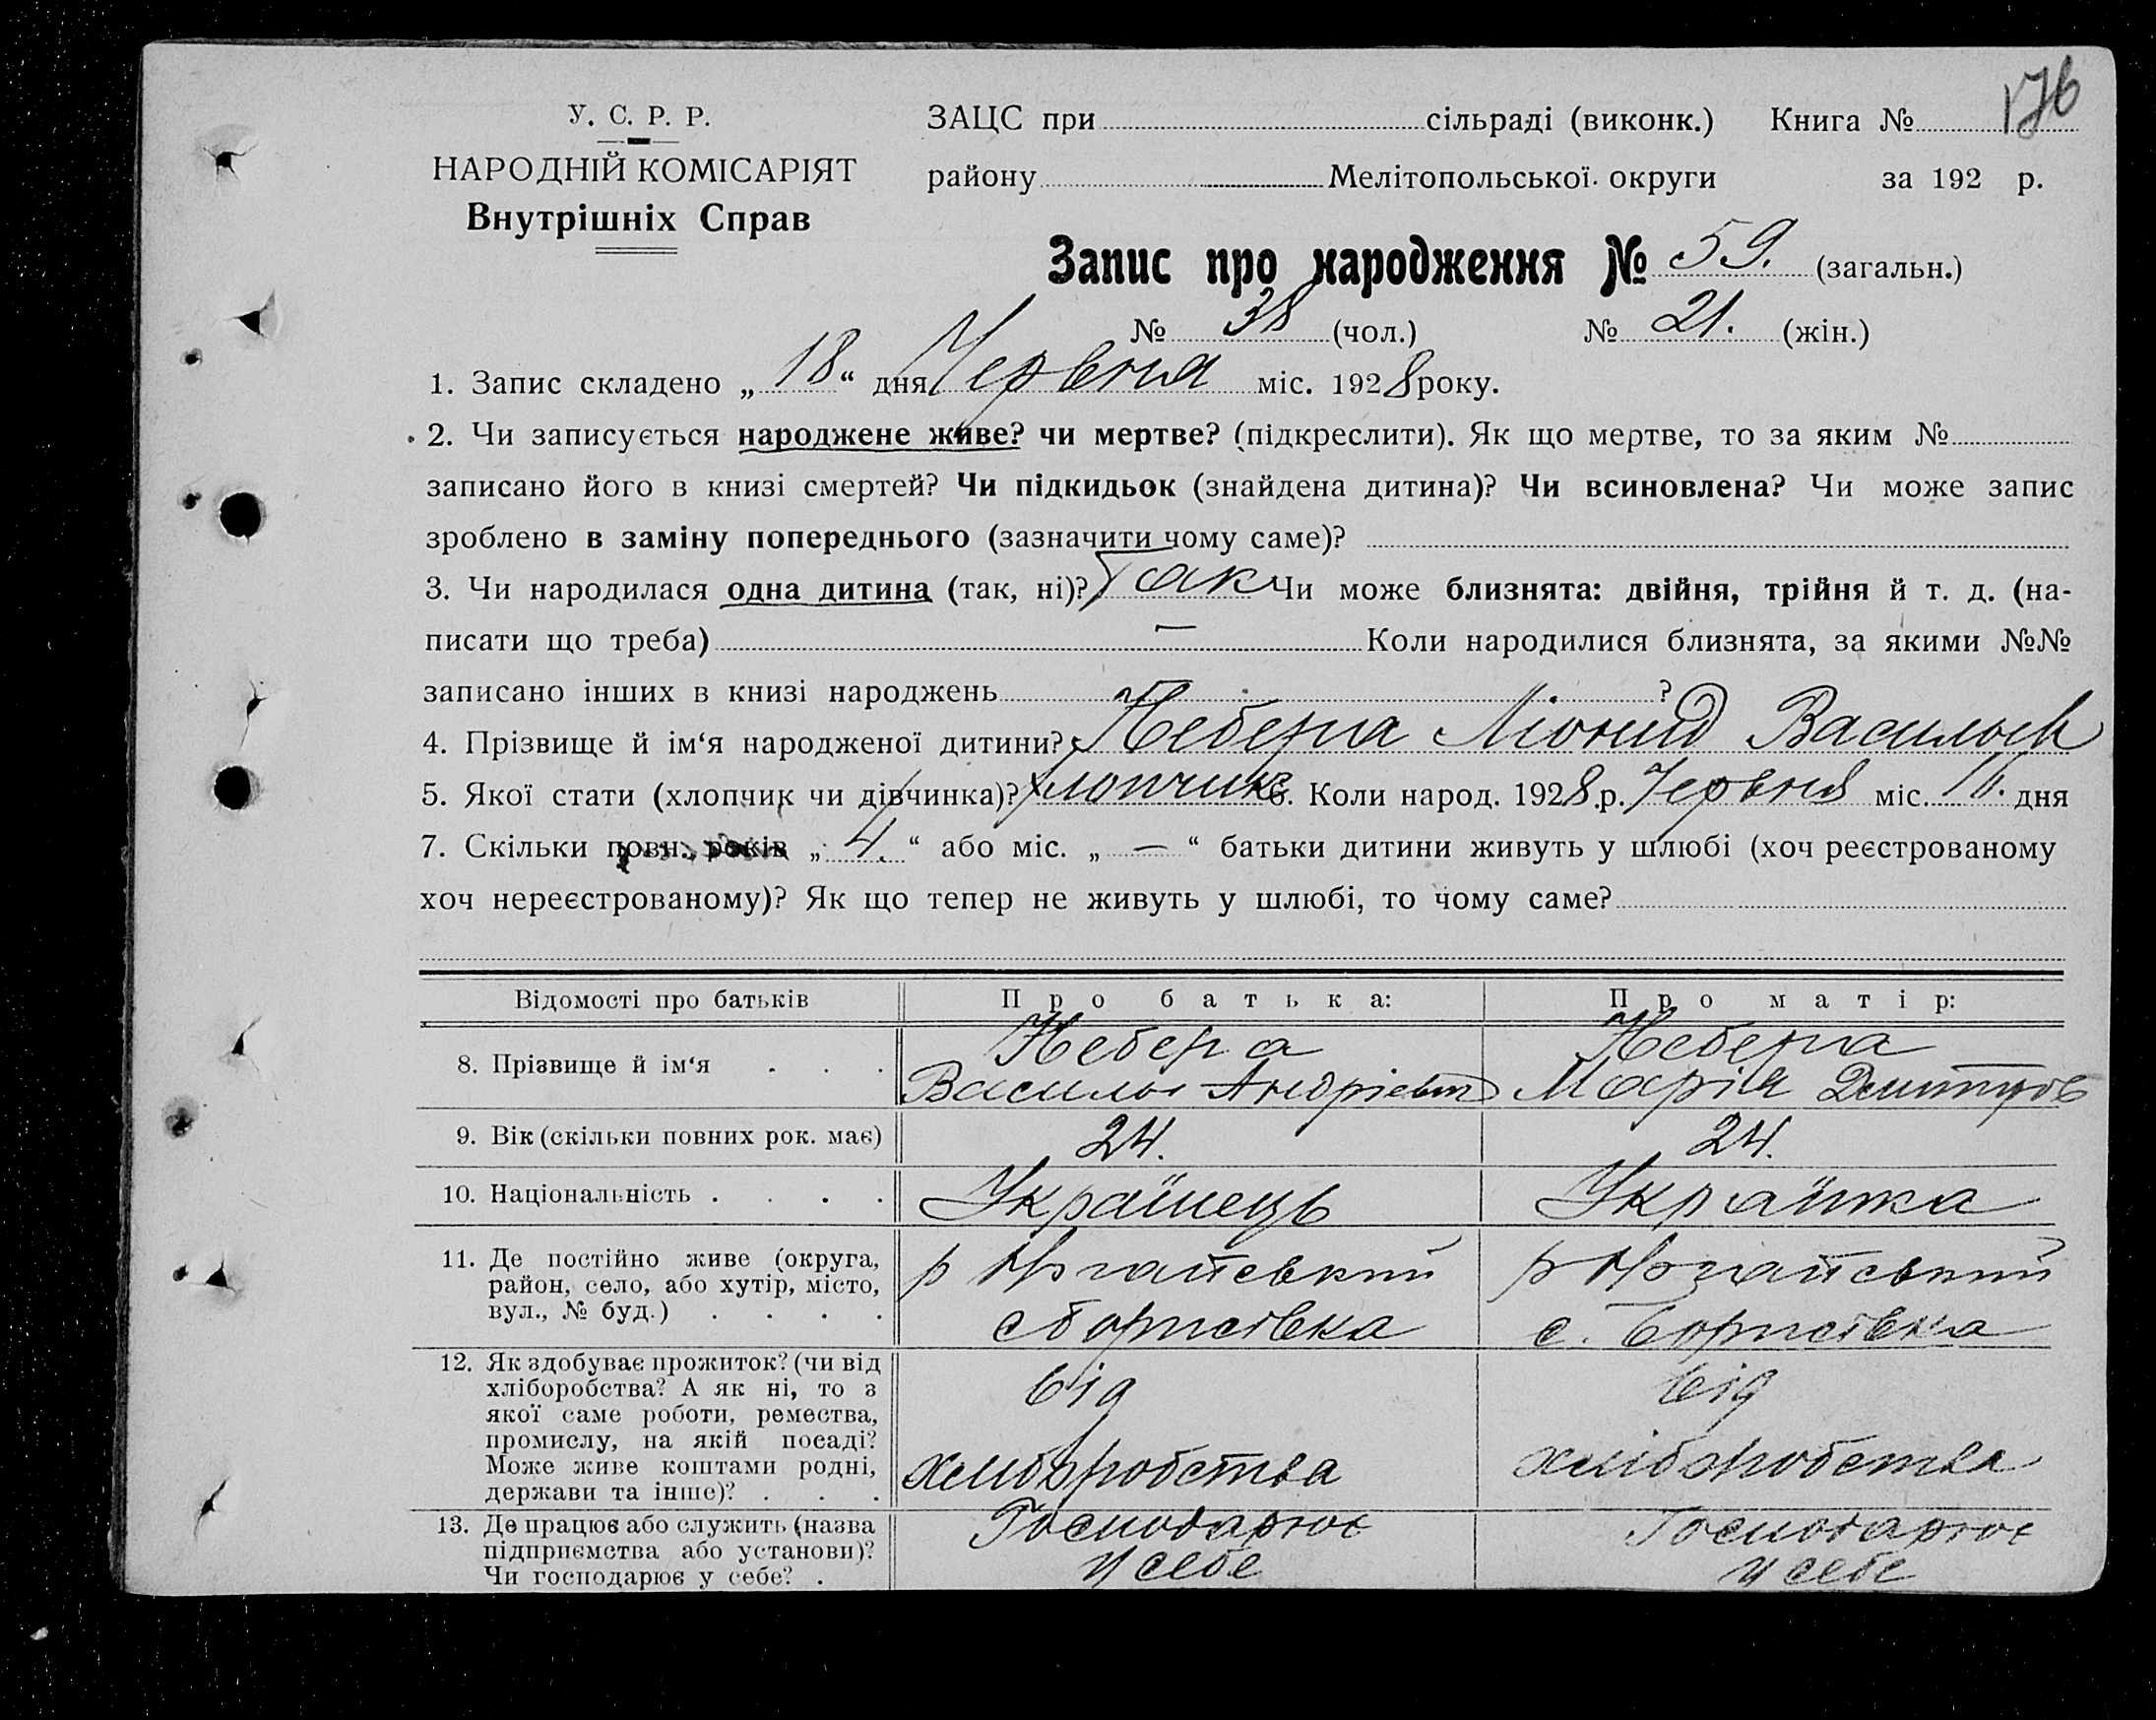 176
У. С. Р. Р.
НАРОДНІЙ КОМІСАРІЯТ
Внутрішніх Справ
ЗАЦС при сільраді (виконк.) Книга №
району Мелітопольської округи за 192 р.
Запис про народження № 59. (загальн.)
№ 38 (чол.) № 21. (жін.)
1. Запис складено „ 18 “ дня Червня міс. 1928 року.
2. Чи записується народжене живе? чи мертве? (підкреслити). Як що мертве, то за яким №
записано його в книзі смертей? Чи підкидьок (знайдена дитина)? Чи всиновлена? Чи може запис
зроблено в заміну попереднього (зазначити чому саме)?
3. Чи народилася одна дитина (так, ні)? Так Чи може близнята: двійня, трійня й т. д. (на-
писати що треба) — Коли народилися близнята, за якими №№
записано інших в книзі народжень ?
4. Прізвище й ім‘я народженої дитини? Небера Васильов
5. Якої стати (хлопчик чи дівчинка)? хлопчик 6. Коли народ. 1928 р. Червня міс. 11. дня
7. Скільки повн. років „ 4. “ або міс. „ — “ батьки дитини живуть у шлюбі (хоч реєстрованому
хоч нереєстрованому)? Як що тепер не живуть у шлюбі, то чому саме?
Відомості про батьків Про батька: Про матір:
8. Прізвище й ім‘я . . . Небера Небера
Василь Андрієвич Марія
9. Вік (скільки повних рок. має) 24. 24.
10. Національність . . . . Українець Українка
11. Де постійно живе (округа,
район, село, або хутір, місто,
вул., № буд.) . . . .
р
с Борисівка
р
с. Борисівка
12. Як здобуває прожиток? (чи від
хліборобства? А як ні, то з
якої саме роботи, ремества,
промислу, на якій посаді?
Може живе коштами родні,
держави та інше)? . . .
від
хліборобства
від
хліборобства
13. Де працює або служить (назва
підприємства або установи)?
Чи господарює у себе? .
Господарює
у себе
Господарює
у себе